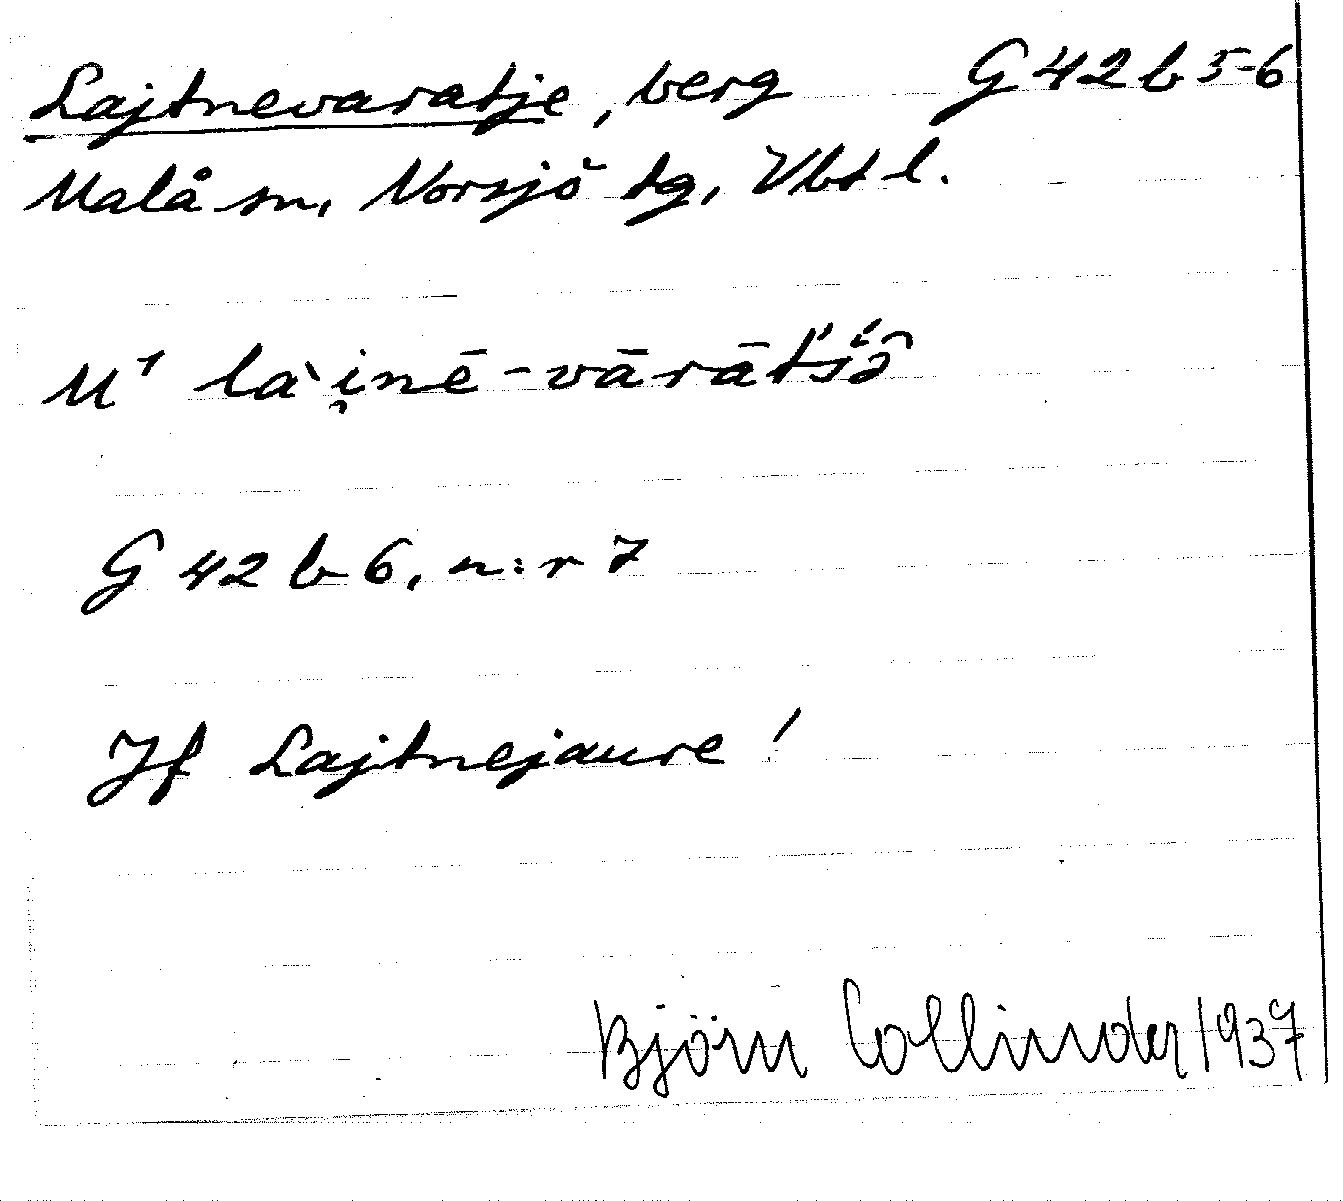 Lajtnevaratje, berg G 42 b 5-6
Malå sn, Norsjö tg, Vbt l.
M¹ là i̯nē-vārāt́śə̑
G 42 b 6, n:r 7
Jf Lajtnejaure!
Björn Collinder 1937